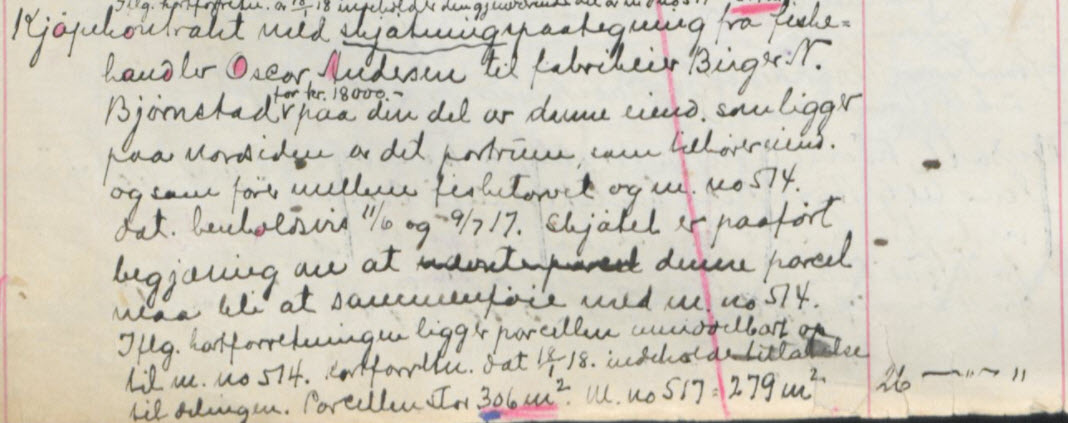 Iflg. kartforretn. av 18/1 18 indeholder den gjenværende del av m. no 517
Kjøpekontrakt med skjøtningspaategning fra fiske=
handler Oscar Andersen til fabrikeier Birger N.
for kr. 18000.-
Bjørnstad paa den del av denne eiend. som ligger
paa nordsiden av det portrum, som tilhører eiend.
og som fører mellem fisketorvet og m. no 514.
dat. henholdsvis 11/6 og 9/7 17. Skjøtet er paaført
begjæring om at denne parcel
maa bli at sammenføie med m. no 514.
Iflg. kartforretningen ligger parcellen umiddelbart op
til m. no 514. Kartforretn. dat 18/1 18. indeholder tillatelse
til delingen. Parcellen stor 306 m². M. no 517 = 279 m²
26 — " — "